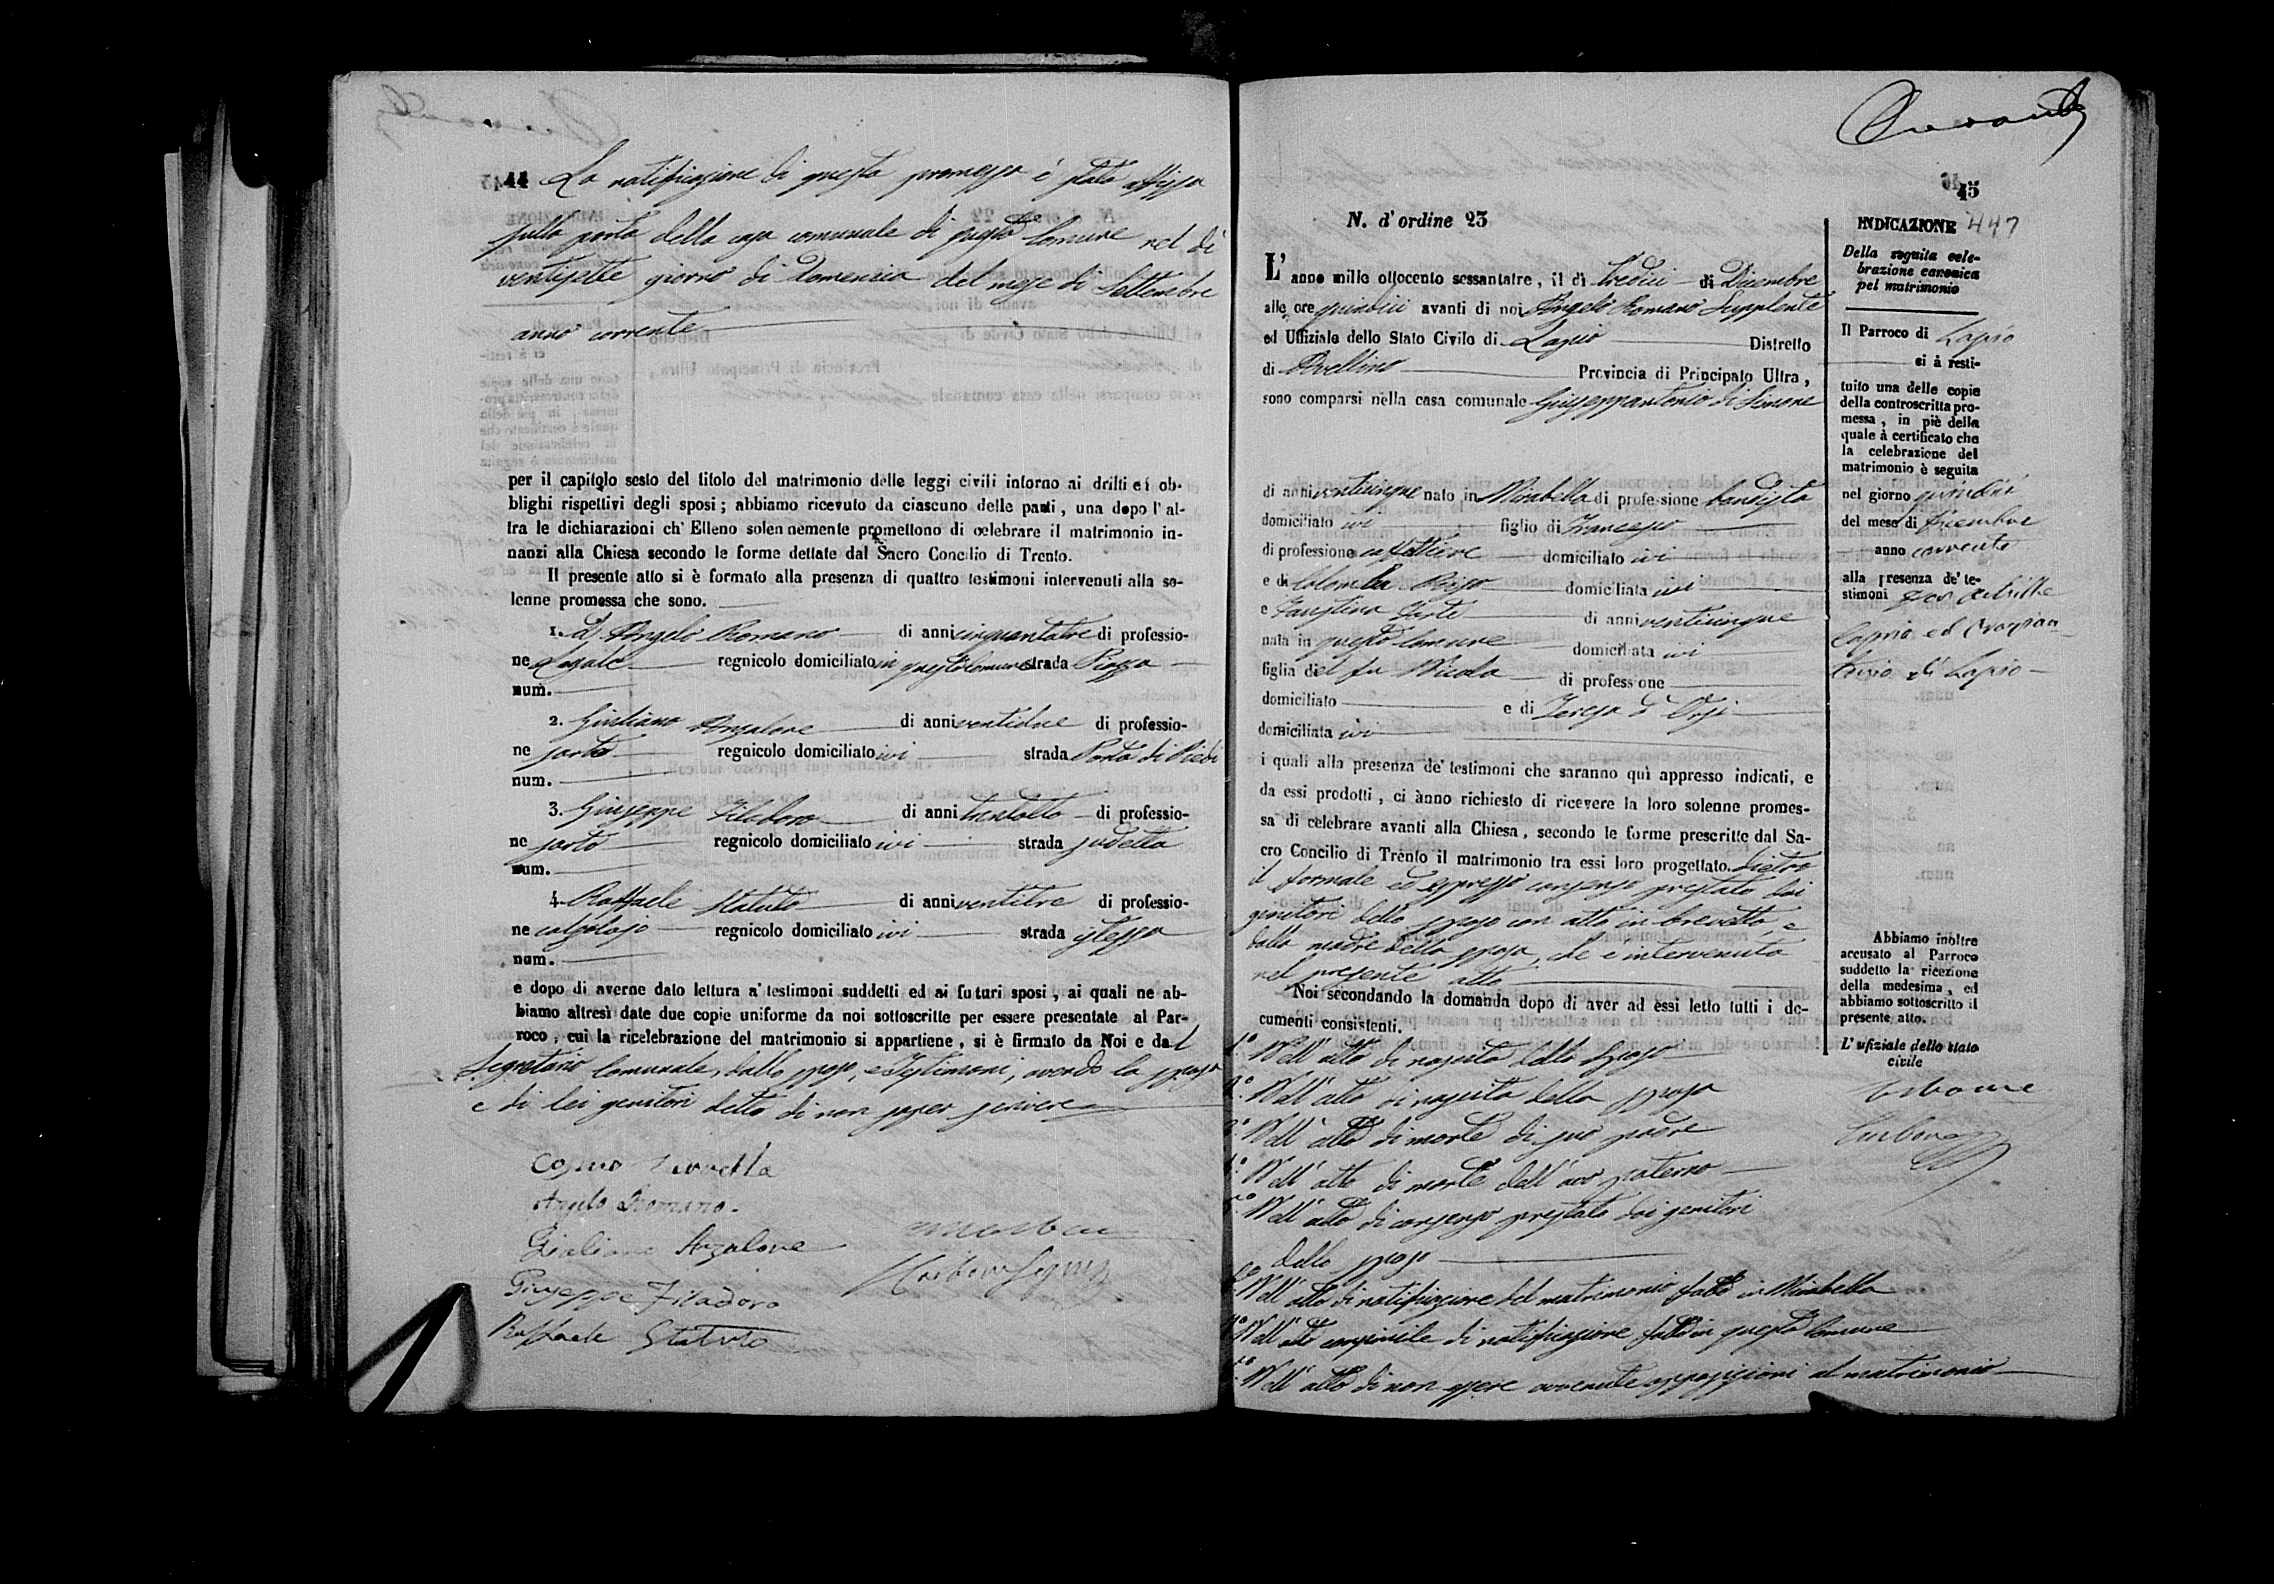 44 La notificazione di questa promessa è stata affissa
sulla porta della casa comunale di questo Comune nel dì
ventisette giorno di Domenica del mese di Settembre
anno corrente
per il capitolo sesto del titolo del matrimonio delle leggi civili intorno ai dritti ed ob-
blighi rispettivi degli sposi; abbiamo ricevuto da ciascuno delle parti, una dopo l' al-
tra le dichiarazioni ch' Elleno solennemente promettono di celebrare il matrimonio in-
nanzi alla Chiesa secondo le forme dettate dal Sacro Concilio di Trento.
Il presente atto si è formato alla presenza di quattro testimoni intervenuti alla so-
lenne promessa che sono.
1. D. Angelo Romano di anni cinquantatre di professio-
ne Legale regnicolo domiciliato in questo Comune strada Piazza
num.
2. Giuliano Anzalone di anni ventidue di professio-
ne sarto regnicolo domiciliato ivi strada Porta di Piedi
num.
3. Giuseppe Filadoro di anni trentotto di professio-
ne sarto regnicolo domiciliato ivi strada sudetta
num.
4. Raffaele Statuto di anni ventitre di professio-
ne calzolajo regnicolo domiciliato ivi strada stessa
num.
e dopo di averne dato lettura a' testimoni suddetti ed ai futuri sposi, ai quali ne ab-
biamo altresì date due copie uniforme da noi sottoscritte per essere presentate al Par-
roco, cui la ricelebrazione del matrimonio si appartiene, si è firmato da Noi e dal
Segretario Comunale, dallo sposo, e Testimoni, avendo la sposa
e di lei genitori detto di non saper scrivere
Cosmo
Angelo Romano
Giuliano Anzalone
Giuseppe Filadoro
Raffaele Statuto
45
447
N. d' ordine 23
L' anno mille ottocento sessantatre, il dì tredici di Dicembre
alle ore quindici avanti di noi Angelo Romano Supplente
ed Uffiziale dello Stato Civile di Lapio Distretto
di Avellino Provincia di Principato Ultra,
sono comparsi nella casa comunale Giuseppantonio di Simone
di anni venticinque nato in Mirabella di professione bandista
domiciliato ivi figlio di Francesco
di professione caffettiere domiciliato ivi
e di Colomba domiciliata ivi
e Faustina Forte di anni venticinque
nata in questo Comune domiciliata ivi
figlia del fu Nicola di professione
domiciliato e di Teresa d' Orsi
domiciliata ivi
i quali alla presenza de' testimoni che saranno quì appresso indicati, e
da essi prodotti, ci ànno richiesto di ricevere la loro solenne promes-
sa di celebrare avanti alla Chiesa, secondo le forme prescritte dal Sa-
cro Concilio di Trento il matrimonio tra essi loro progettato. dietro
il formale ed espresso consenso prestato dai
genitori dello sposo con atto in brevetto, e
dalla madre della sposa, che è intervenuta
nel presente atto
Noi secondando la domanda dopo di aver ad essi letto tutti i do-
cumenti consistenti.
1.° Nell' atto di nascita dello sposo
2.° Nell' atto di nascita della sposa
3.° Nell' atto di morte di suo padre
4.° Nell' atto di morte dell' avo paterno
5.° Nell' atto di consenso prestato dai genitori
dello sposo
6.° Nell' atto di notificazione del matrimonio fatto in Mirabella
7.° Nell' atto consimile di notificazione fatto in questo Comune
8.° Nell' atto di non essere avvenute opposizioni al matrimonio
INDICAZIONE
Della seguita cele-
brazione canonica
pel matrimonio
Il Parroco di Lapio
ci à resti-
tuito una delle copie
della controscritta pro-
messa, in piè della
quale à certificato che
la celebrazione del
matrimonio è seguita
nel giorno quindici
del mese di Dicembre
anno corrente
alla presenza de' te-
stimoni
di Lapio
Abbiamo inoltre
accusato al Parroco
suddetto la ricezione
della medesima, ed
abbiamo sottoscritto il
presente atto.
L' ufiziale dello stato
civile